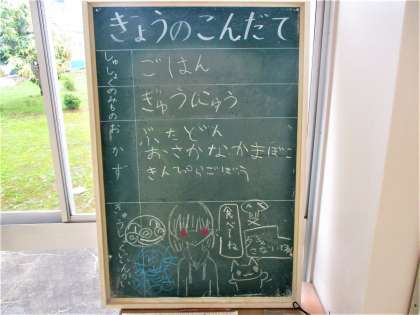 きょうのこんだて
しゅしょく
ごはん
のみもの
ぎゅうにゅう
おかず
ぶたどん
おさかなかまぼこ
きんぴらごぼう
食べしね